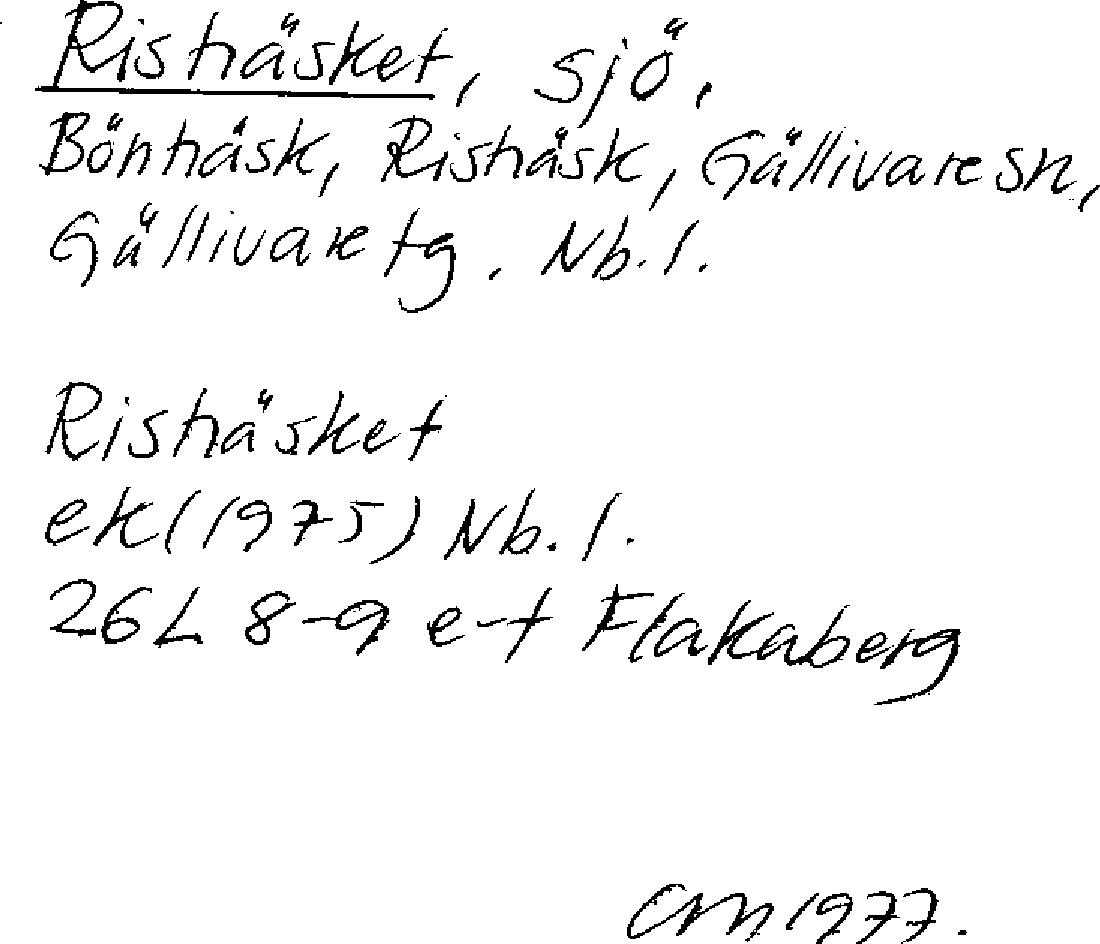 Risträsket, sjö,
Bönträsk, Risträsk, Gällivare sn,
Gällivare tg. Nb.l.
Risträsket
ek (1975) Nb.l.
26L 8-9 e-f Flakaberg
CM 1977.